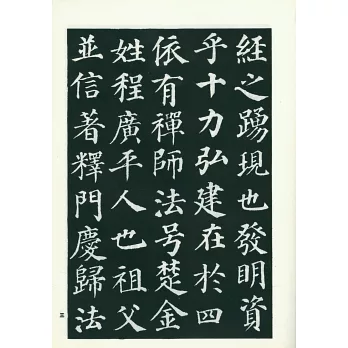 經之踴現也發明資
乎十力弘建在於四
依有禪師法号楚金
姓程廣平人也祖父
並信著釋門慶歸法
三